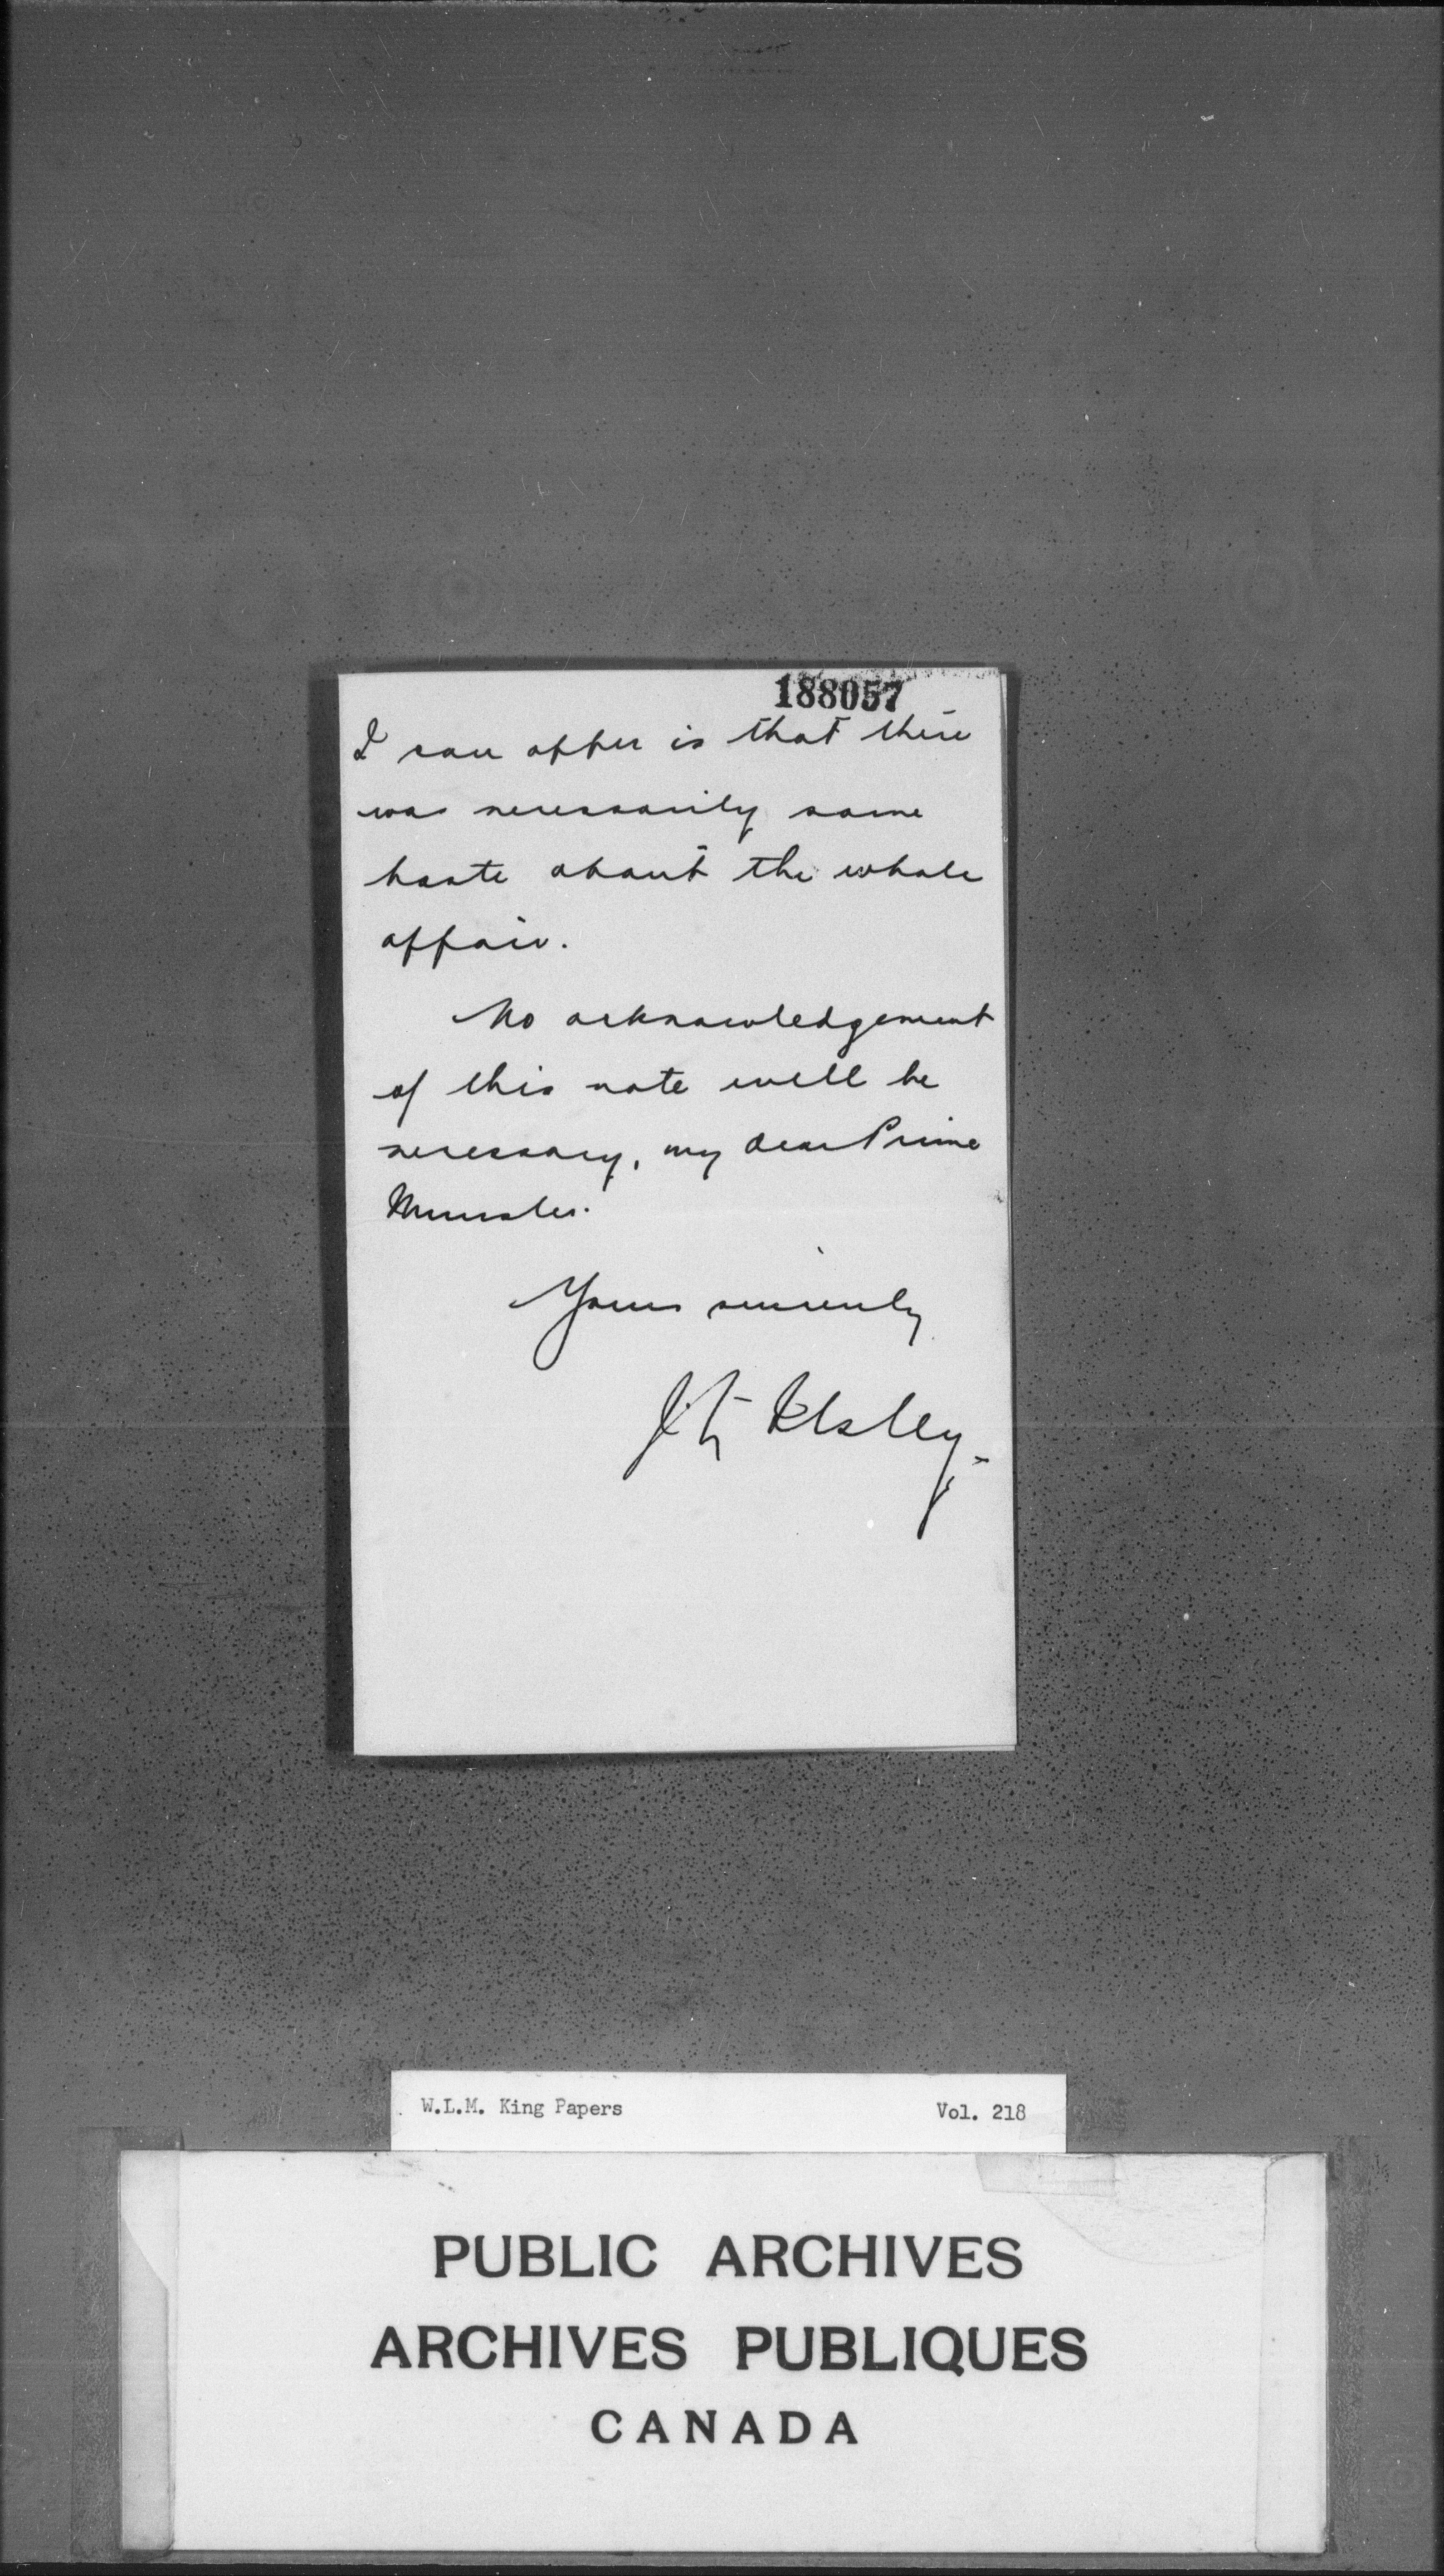 188057
I can offer is that there
was necessarily some
haste about the whole
affair.
No acknowledgement
of this note will be
necessary, my dear Prime
Minister.
Yours sincerely
J. L. Ilsley.
W.L.M. King Papers Vol. 218
PUBLIC ARCHIVES
ARCHIVES PUBLIQUES
CANADA